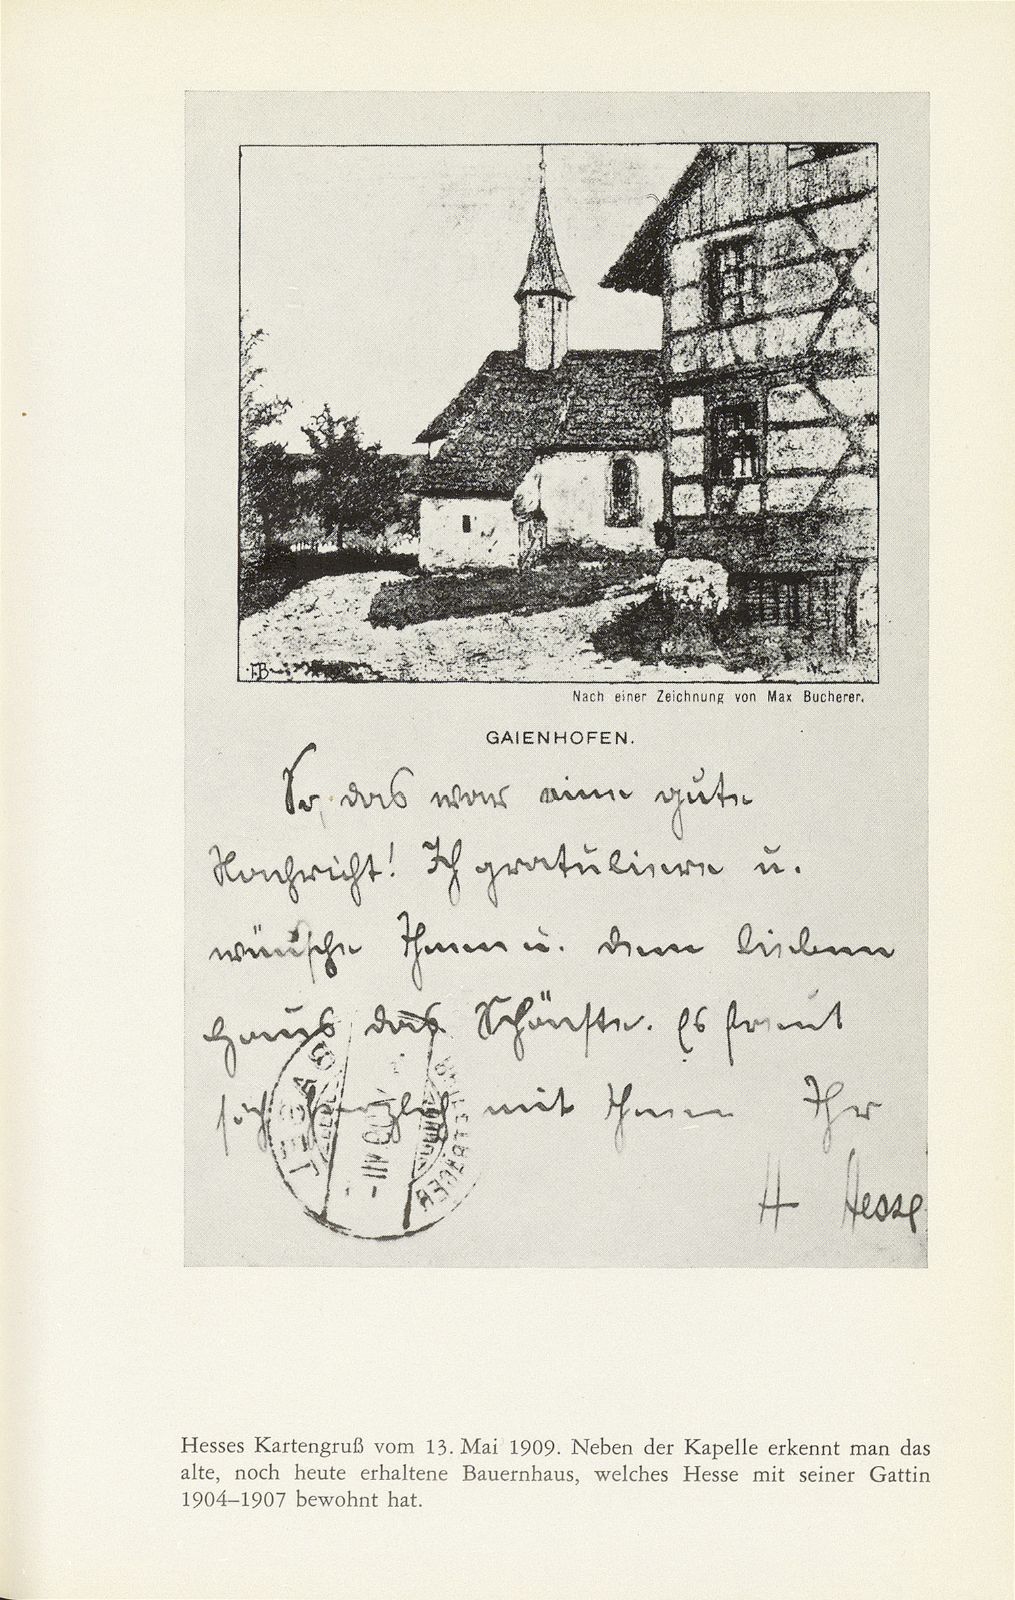 FB
Nach einer Zeichnung von Max Bucherer.
GAIENHOFEN.
So, das war eine gute
Nachricht! Ich gratuliere u.
wünsche Ihnen u. dem lieben
Haus das Schönste. Es freut
sich herzlich mit Ihnen Ihr
H Hesse
BASEL
Hesses Kartengruß vom 13. Mai 1909. Neben der Kapelle erkennt man das
alte, noch heute erhaltene Bauernhaus, welches Hesse mit seiner Gattin
1904–1907 bewohnt hat.